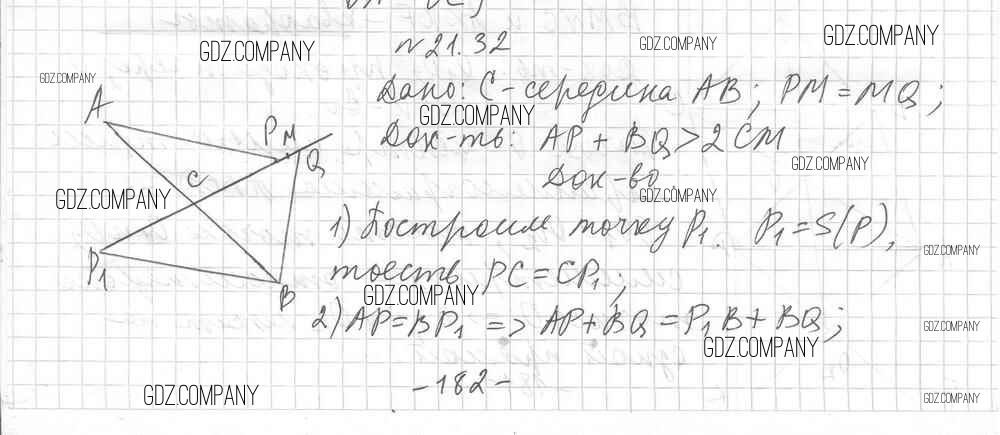 N 21.32
Дано: C-середина AB; PM=MQ;
Док-ть: AP + BQ > 2CM
Док-во
1) Построим точку P₁. P₁=S(P),
тоесть PC=CP₁;
2) AP=BP₁ => AP+BQ=P₁B+BQ;
-182-
A
P M
Q
C
P₁
B
GDZ.COMPANY
GDZ.COMPANY
GDZ.COMPANY
GDZ.COMPANY
GDZ.COMPANY
GDZ.COMPANY
GDZ.COMPANY
GDZ.COMPANY
GDZ.COMPANY
GDZ.COMPANY
GDZ.COMPANY
GDZ.COMPANY
GDZ.COMPANY
GDZ.COMPANY